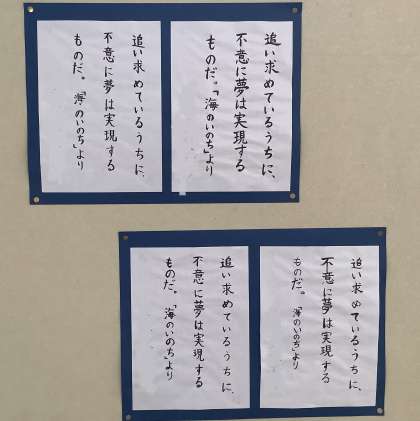 追い求めているうちに、
不意に夢は実現する
ものだ。「海のいのち」より
追い求めているうちに、
不意に夢は実現する
ものだ。「海のいのち」より
追い求めているうちに、
不意に夢は実現する
ものだ。「海のいのち」より
追い求めているうちに、
不意に夢は実現する
ものだ。「海のいのち」より